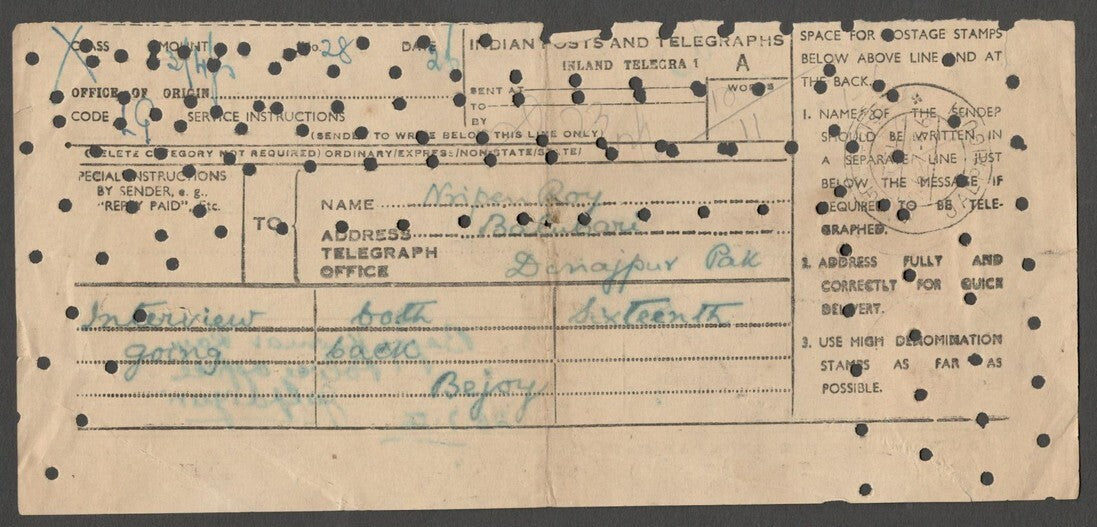 CLASS AMOUNT No. 28 DATE
INDIAN POSTS AND TELEGRAPHS
INLAND TELEGRA
A
OFFICE OF ORIGIN
SENT AT
WORDS
TO
11
CODE SERVICE INSTRUCTIONS
BY
(SENDER TO WRITE BELOW THIS LINE ONLY)
(DELETE CATEGORY NOT REQUIRED) ORDINARY/EXPRESS/NON-STATE/STATE/
SPECIAL INSTRUCTIONS
BY SENDER, e. g.,
"REPLY PAID", Etc.
TO
NAME Nripen Roy
ADDRESS Balubari
TELEGRAPH
OFFICE Dinajpur Pak
Interview both Sixteenth
going back
Bejoy
SPACE FOR POSTAGE STAMPS
BELOW ABOVE LINE AND AT
THE BACK.
1. NAME OF THE SENDER
SHOULD BE WRITTEN IN
A SEPARATE LINE JUST
BELOW THE MESSAGE IF
REQUIRED TO BE TELE-
GRAPHED.
2. ADDRESS FULLY AND
CORRECTLY FOR QUICK
DELIVERY.
3. USE HIGH DENOMINATION
STAMPS AS FAR AS
POSSIBLE.